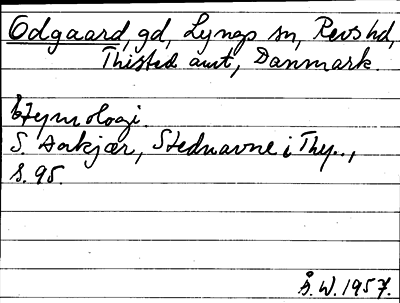 Odgaard, gd, Lyngs sn, Revs hd,
Thisted amt, Danmark.
Etymologi.
S. Aakjær, Stednavne i Thy..,
s. 95.
Å. W. 1957.